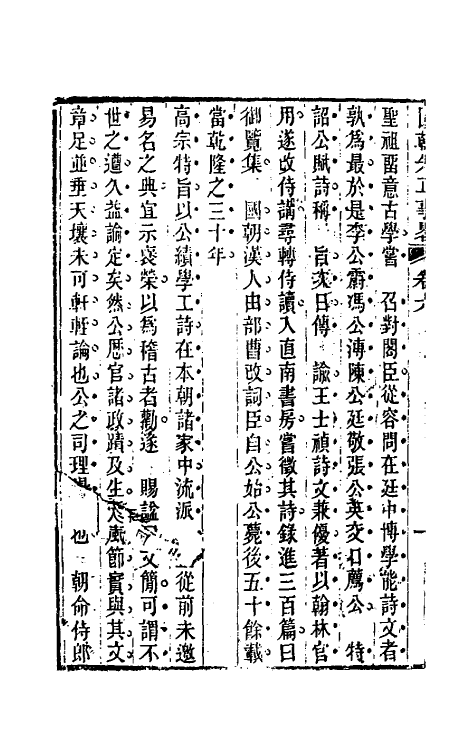 國朝先正事畧 卷六
聖祖畱意古學嘗 召對閣臣從容問在廷中博學能詩文者
孰爲最於是李公霨馮公溥陳公廷敬張公英交口薦公 特
詔公賦詩稱 旨次日傳 諭王士禎詩文兼優著以翰林官
用遂改侍講尋轉侍讀入直南書房嘗徵其詩錄進三百篇曰
御覽集 國朝漢人由部曹改詞臣自公始公薨後五十餘載
當乾隆之三十年
高宗特旨以公績學工詩在本朝諸家中流派 從前未邀
易名之典宜示襃榮以爲稽古者勸遂 賜諡 文簡可謂不
世之遭久益論定矣然公歷官諸政蹟及生 風節實與其文
章足並垂天壤未可軒輊論也公之司理 也 朝命侍郎